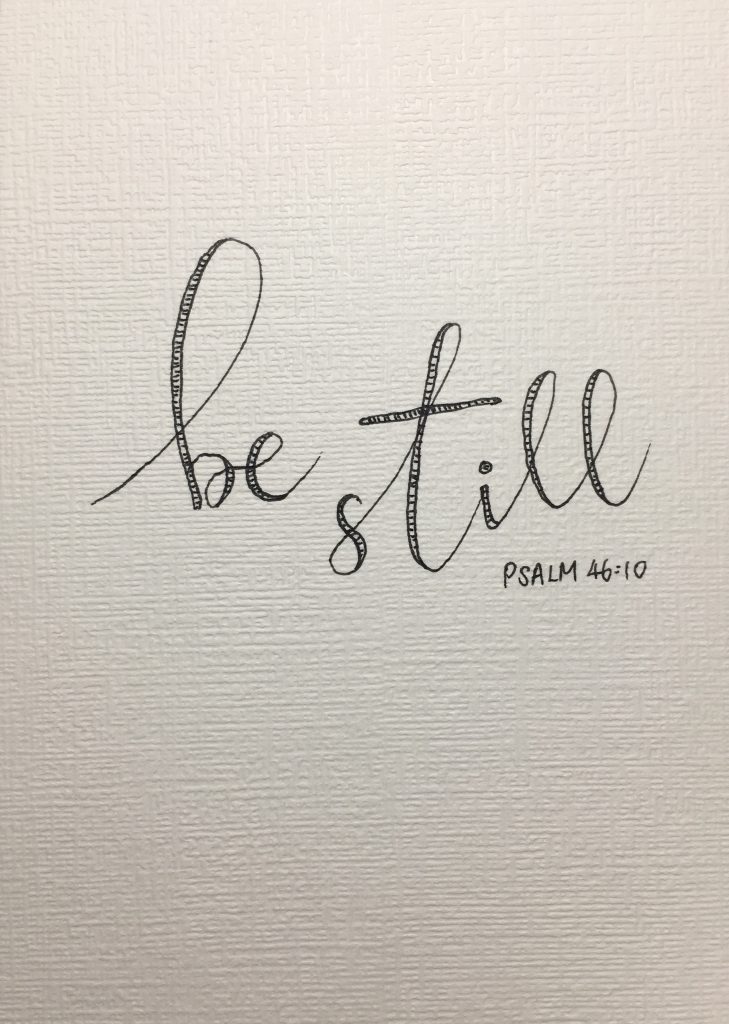 be still
PSALM 46:10